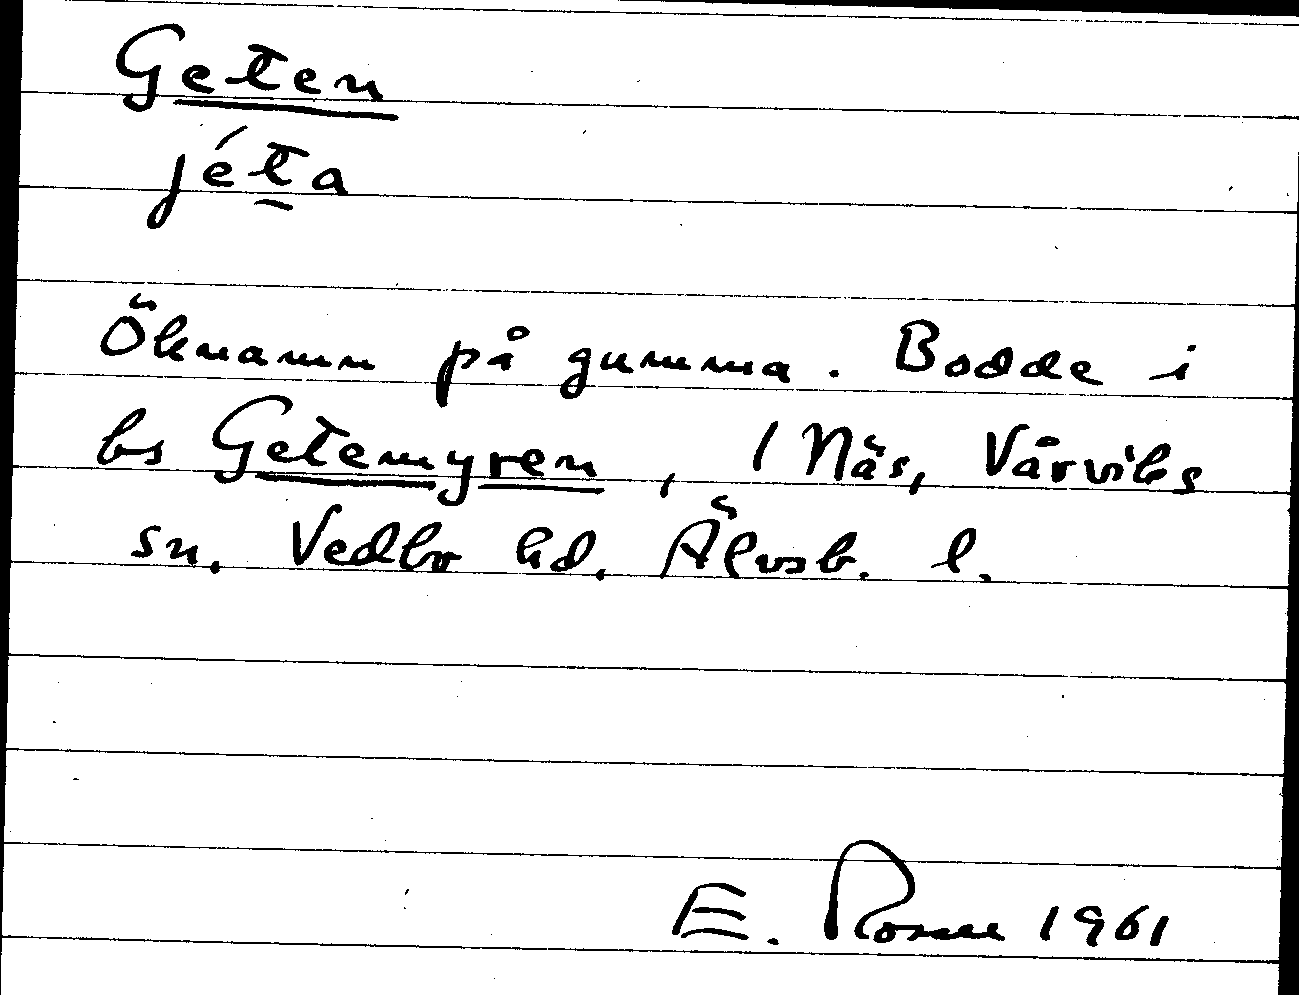 Geten
jéta
Öknamn på gumma. Bodde i
bs Getemyren, 1 Näs, Vårviks
sn. Vedbo hd. Älvsb. l.
E. Rosell 1961